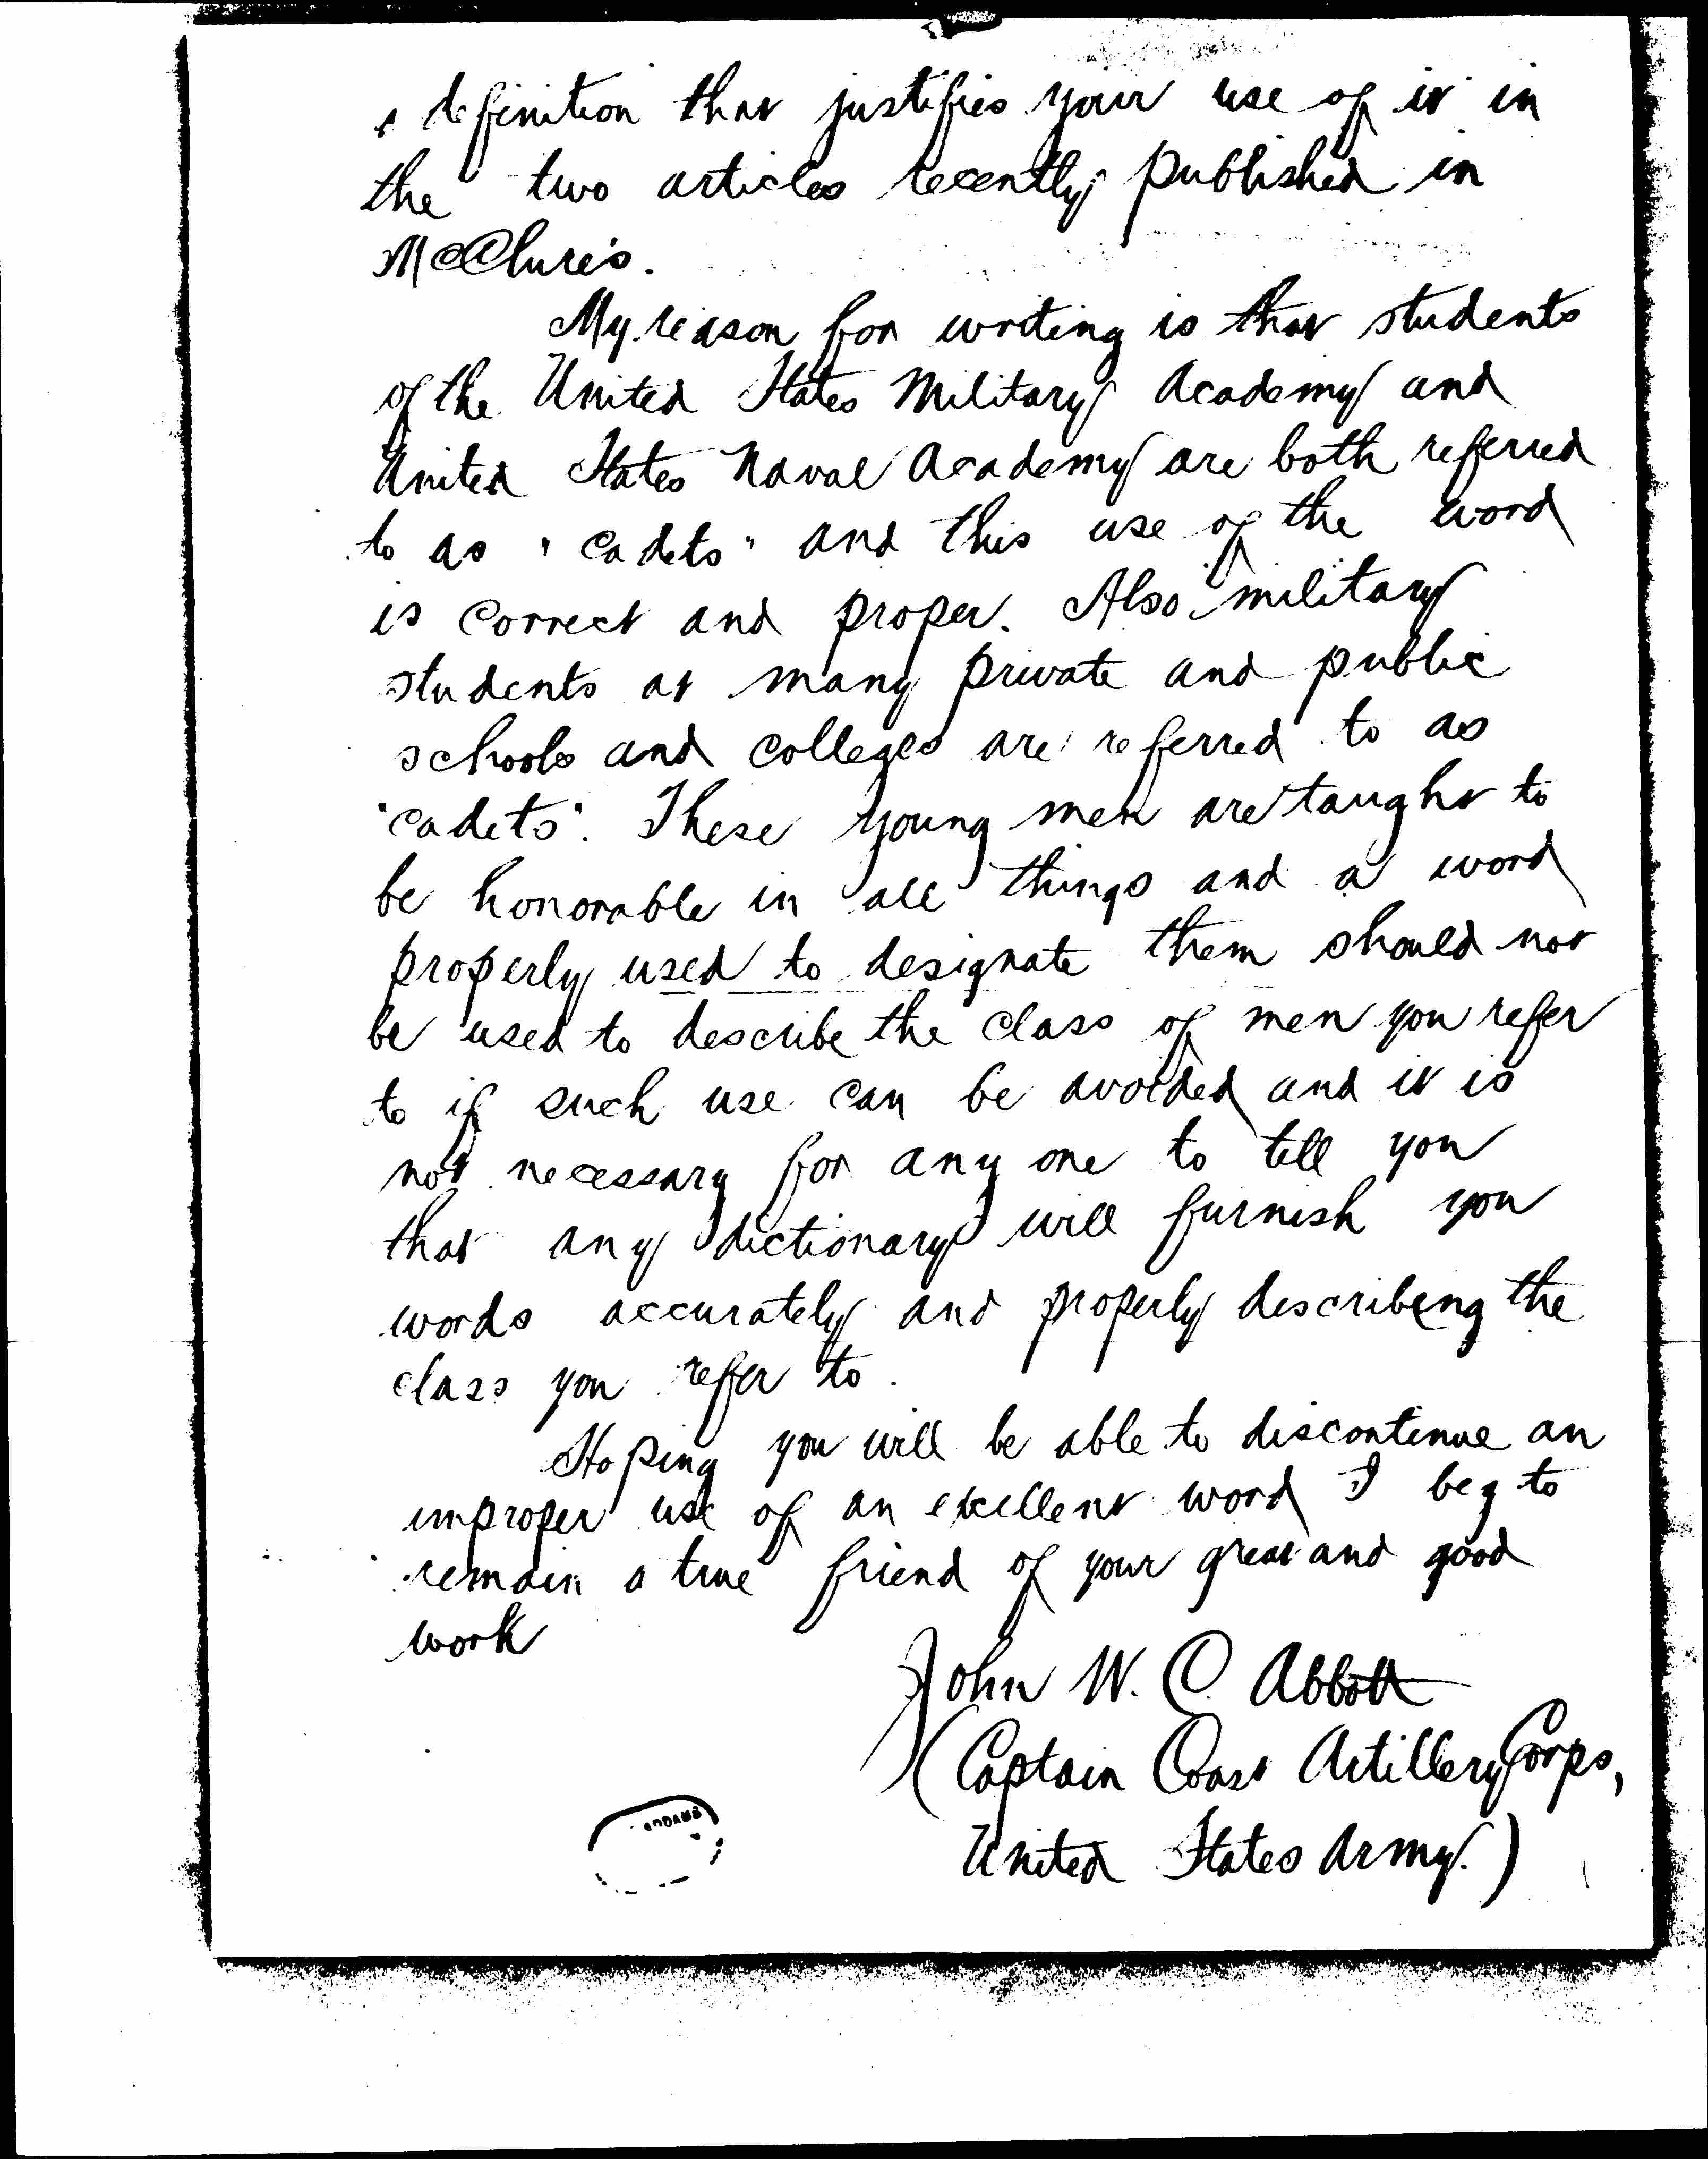 a definition that justifies your use of it in
the two articles recently published in
McClure's.
My reason for writing is that students
of the United States Military Academy and
United States Naval Academy are both referred
to as "cadets" and this use of the word
is correct and proper. Also military
students at many private and public
schools and colleges are referred to as
"cadets". These young men are taught to
be honorable in all things and a word
properly used to designate them should not
be used to describe the class of men you refer
to if such use can be avoided and it is
not necessary for any one to tell you
that any dictionary will furnish you
words accurately and properly describing the
class you refer to.
Hoping you will be able to discontinue an
improper use of an excellent word I beg to
remain a true friend of your great and good
work
John W. C. Abbott
(Captain Coast Artillery Corps,
United States Army.)
ADDAMS